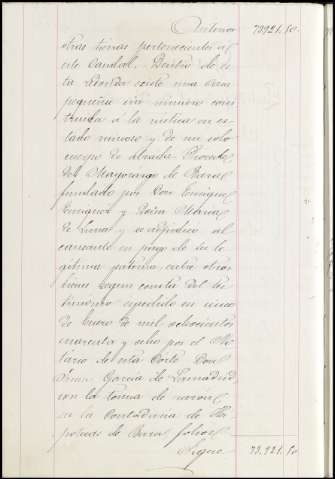 Anterior 73921.50.
otras tierras pertenecientes al
este Caudal. Dentro de es
ta tierra existe una casa
pequeña sin número cons
truida á la rustica en es
tado ruinoso y de un solo
cuerpo de alzada. Procede
del Mayorazgo de
fundado por Don Enrique
Enriquez y Doña Maria
de Luna y se adjudico al
causante en pago de su le
gitima paterna entre otros
bienes segun consta del tes
timonio espedido en cinco
de Enero de mil ochocientos
cuarenta y ocho por el No
tario de esta Corte Don
Juan Garcia de Lamadrid
con la toma de razon
en la Contaduria de Hi
potecas de Baza folio
Sigue 73.921.50